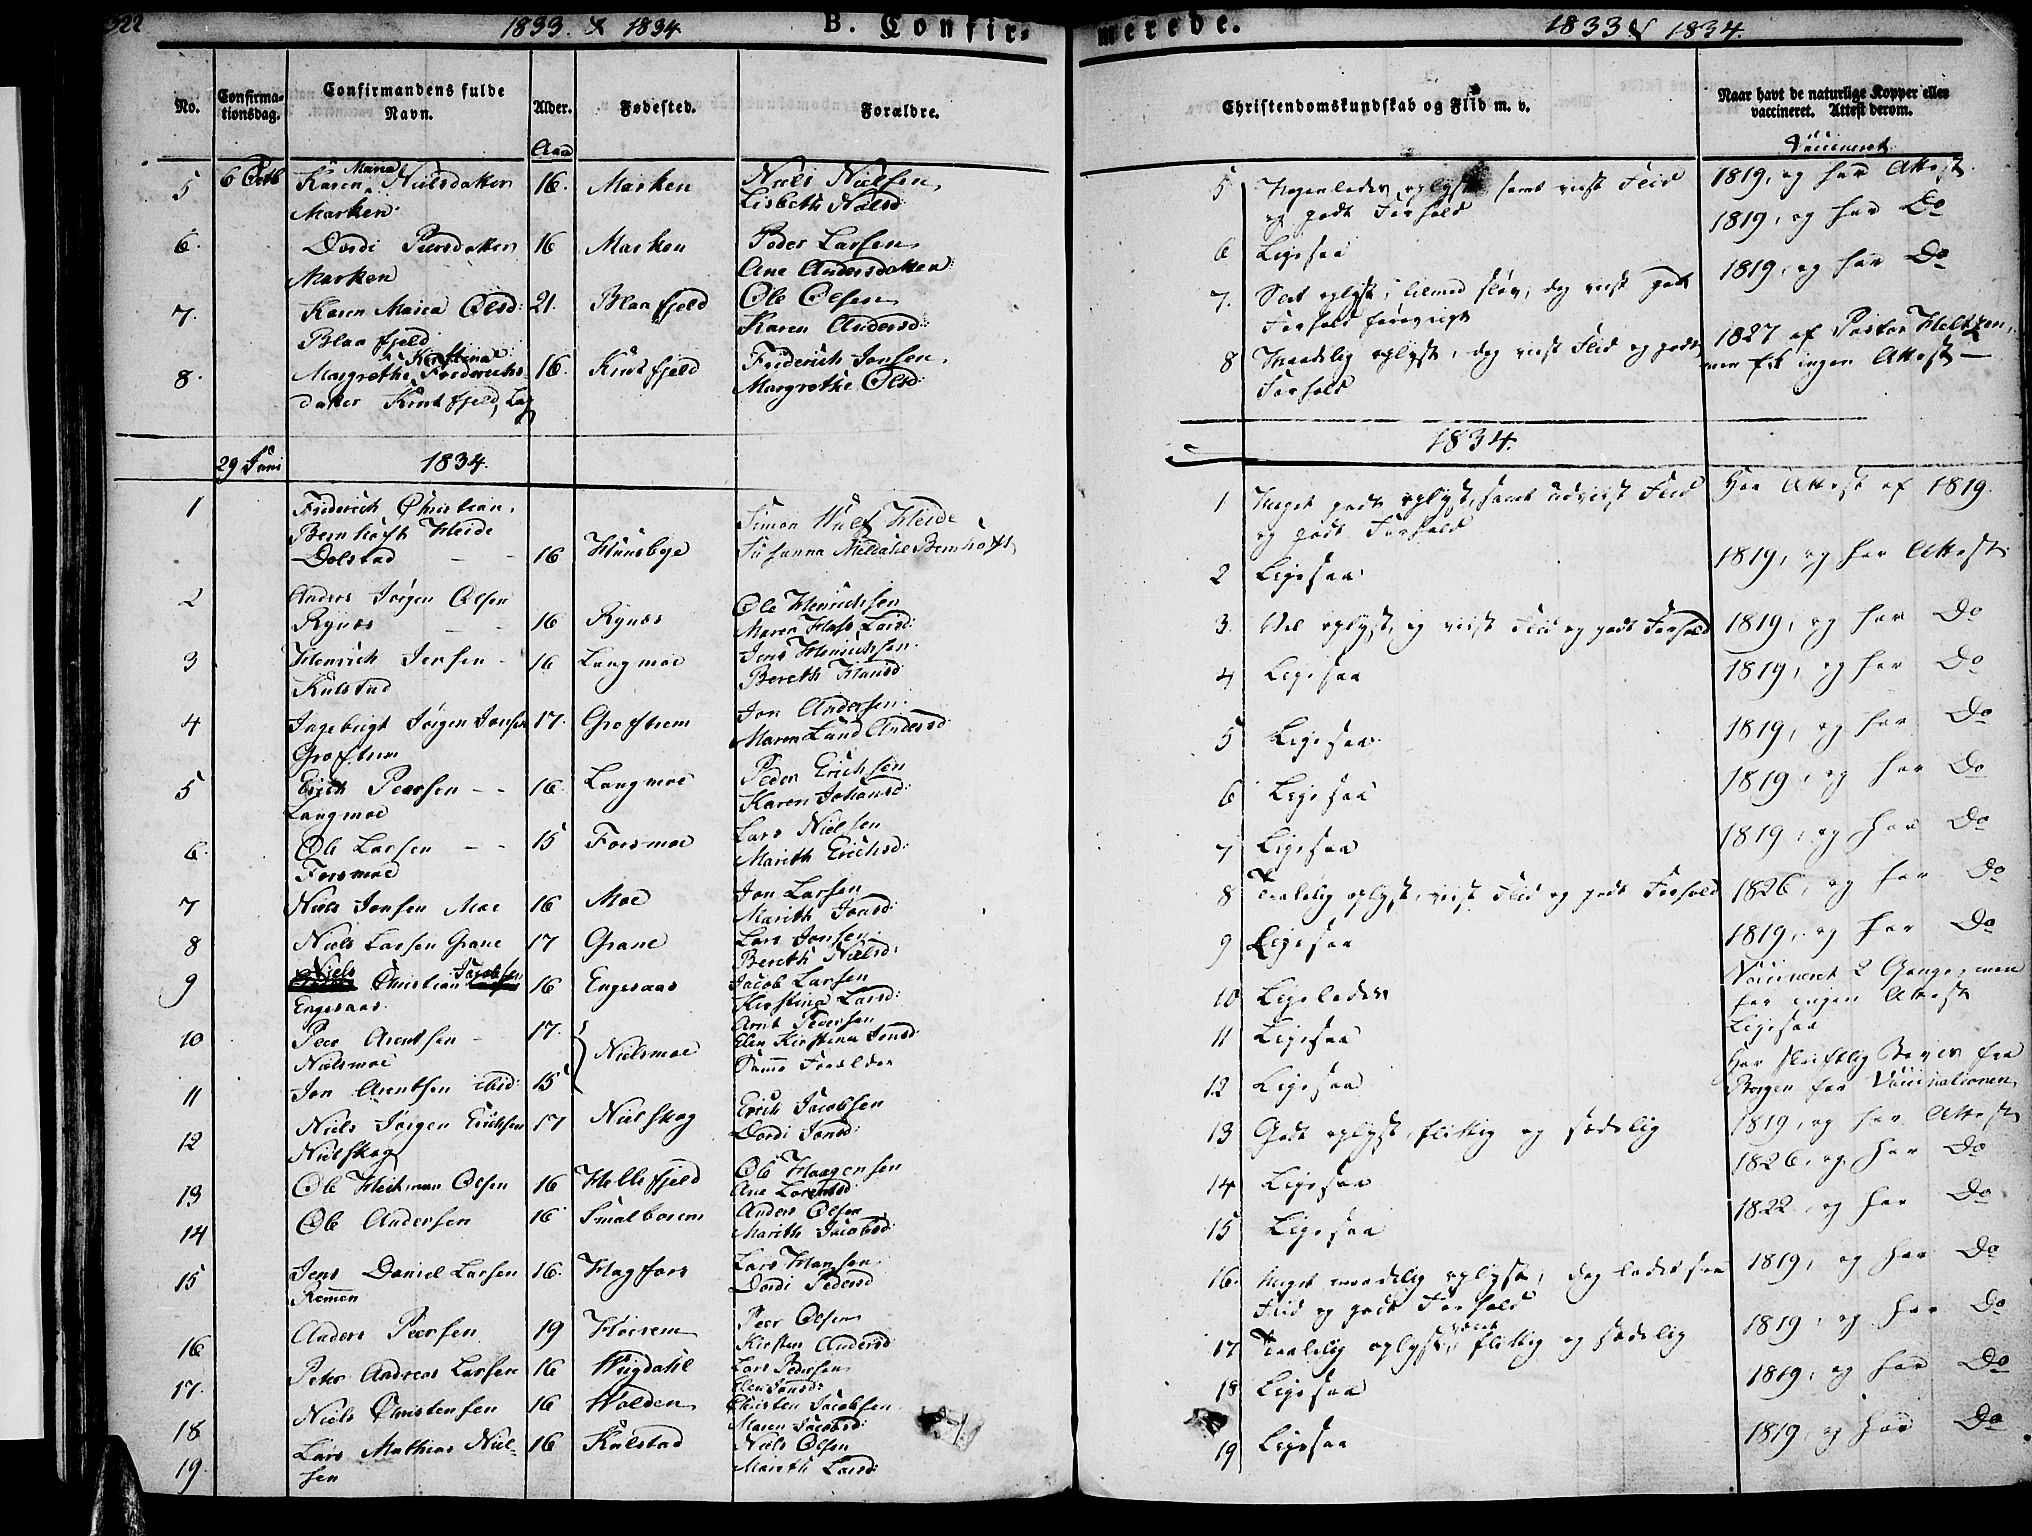 322
1833. & 1834.
B. Confir-
merede.
1833 & 1834.
No.
Confirma-
tionsdag.
Confirmandens fulde
Navn.
Alder.
Aar
Fødested.
Forældre.
Christendomskundskab og Flid m. v.
Naar havt de naturlige Kopper eller
vaccineret. Attest derom.
Vaccineret
5 6 Octb Karen Maria Nielsdatter 16. Marken Niels Nielsen,
Marken. Lisbeth Nielsd:
6. Dordi Peersdatter 16 Marken Peder Larsen
Marken Ane Andersdatter
7. Karen Maria Olsd: 21. Blaafjeld Ole Olsen
Blaafjeld Karen Andersd:
8. Margrethe Kirstina Frederichs 16. Frederich Jonsen,
datter Margrethe Olsd:
29 Juni 1834.
1 Frederich Christian
Bernhoft Heide Simon Wulf Heide
Dolstad 16 Huusbye Susanna Meldahl Bernhoft
2 Anders Jørgen Olsen Ole Henrichsen
Rynes 16 Rynes Maren Larsd:
3 Henrich Jensen 16 Langmoe Jens Henrichsen
Kulstad Bereth Hansd:
4 Ingebrigt Jørgen Jonsen 17. Groftrem Jon Andersen.
Groftrem Maren Lund Andersd
5 Erich Peersen 16 Langmoe Peder Erichsen
Langmoe Karen Johansd:
6. Ole Larsen 15 Forsmoe Lars Nielsen
Forsmoe Marith Erichsd:
7 Niels Jonsen Moe 16 Moe Jon Larsen
Marith Jonsd:
8 Niels Larsen Grane 17 Grane Lars Jonsen
Bereth Nielsd:
9 Niels Christian Jacobsen 16 Engesaas Jacob Larsen
Engesaas Kirstina Larsd:
10 Peer Arentsen 17. Nielsmoe Arnt Pedersen
Nielsmoe Elen Kirstina Jonsd:
11 Jon Arentsen ibid: 15 Samme Forældre
12 Niels Jørgen Erichsen 17 Nielskog Erich Jacobsen
Nielskog Dordi Jonsd:
13 Ole Heitman Olsen 16 Hellefjeld Ole Haagensen
Ane Larsd:
14 Ole Andersen 16 Smalbosen Anders Olsen
Marith Jacobsd:
15 Jens Daniel Larsen 16. Hagfors Lars Hansen
Remen Dordi Pedersd
16 Anders Peersen 19 Peer Olsen
Kirsten Andersd
17. Peter Andreas Larsen 16 Wigdahl Lars Pedersen
Elen Jonsd:
18 Niels Christensen 16 Holden Christen Jacobsen
Maren Jacobsd:
19. Lars Mathias Niel- 16 Kulstad Niels Olsen
sen Marith Larsd:
5 Nogenledes oplyst samt viist Flid 1819, og har Attest.
og godt Forhold
6 Ligesaa 1819, og har Do
7. Slet oplyst, tilmed sløv, dog viist godt 1819, og har Do
Forhold forøvrigt
8 Maadelig oplyst, dog viist Flid og godt 1827 af Pastor Heltzen,
Forhold men fik ingen Attest —
1834.
1 Meget godt oplyst, samt udviist Flid Har Attest af 1819.
og godt Forhold
2 Ligesaa 1819, og har Attest.
3. Vel oplyst, og viist Flid og godt Forhold 1819, og har Do
4 Ligesaa 1819, og har Do
5 Ligesaa 1819, og har Do
6 Ligesaa 1819, og har Do
7 Ligesaa 1819, og har Do
8 Taalelig oplyst, viist Flid og godt Forhold 1826, og har Do
9 Ligesaa 1819, og har Do
10 Ligeledes Vaccineret 2 Gange, men
har ingen Attest
11 Ligesaa Ligesaa
12 Ligesaa Har skriftlig Beviis fra
Bergen for Vaccinationen
13 Godt oplyst, flittig og sædelig 1819, og har Attest
14 Ligesaa 1826, og har Do
15 Ligesaa 1822, og har Do
16. Meget maadelig oplyst, dog ladet see 1819, og har Do
Flid og godt Forhold
17 Taalelig oplyst, været flittig og sædelig 1819, og har Do
18 Ligesaa 1819, og har Do
19 Ligesaa 1819, og har Do